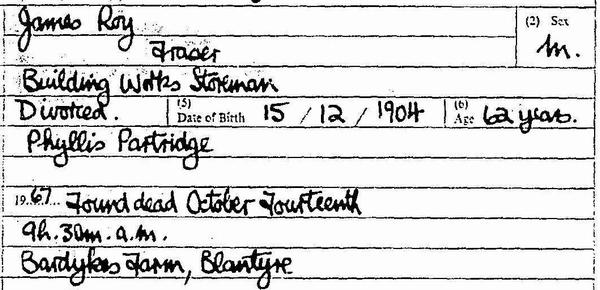 James Roy
(2) Sex
Fraser
M.
Building Works Storeman
Divorced. (5) Date of Birth 15 / 12 / 1904 (6) Age 62 years.
Phyllis Partridge
1967... Found dead October Fourteenth
9h. 30m. a.m.
Bardykes Farm, Blantyre